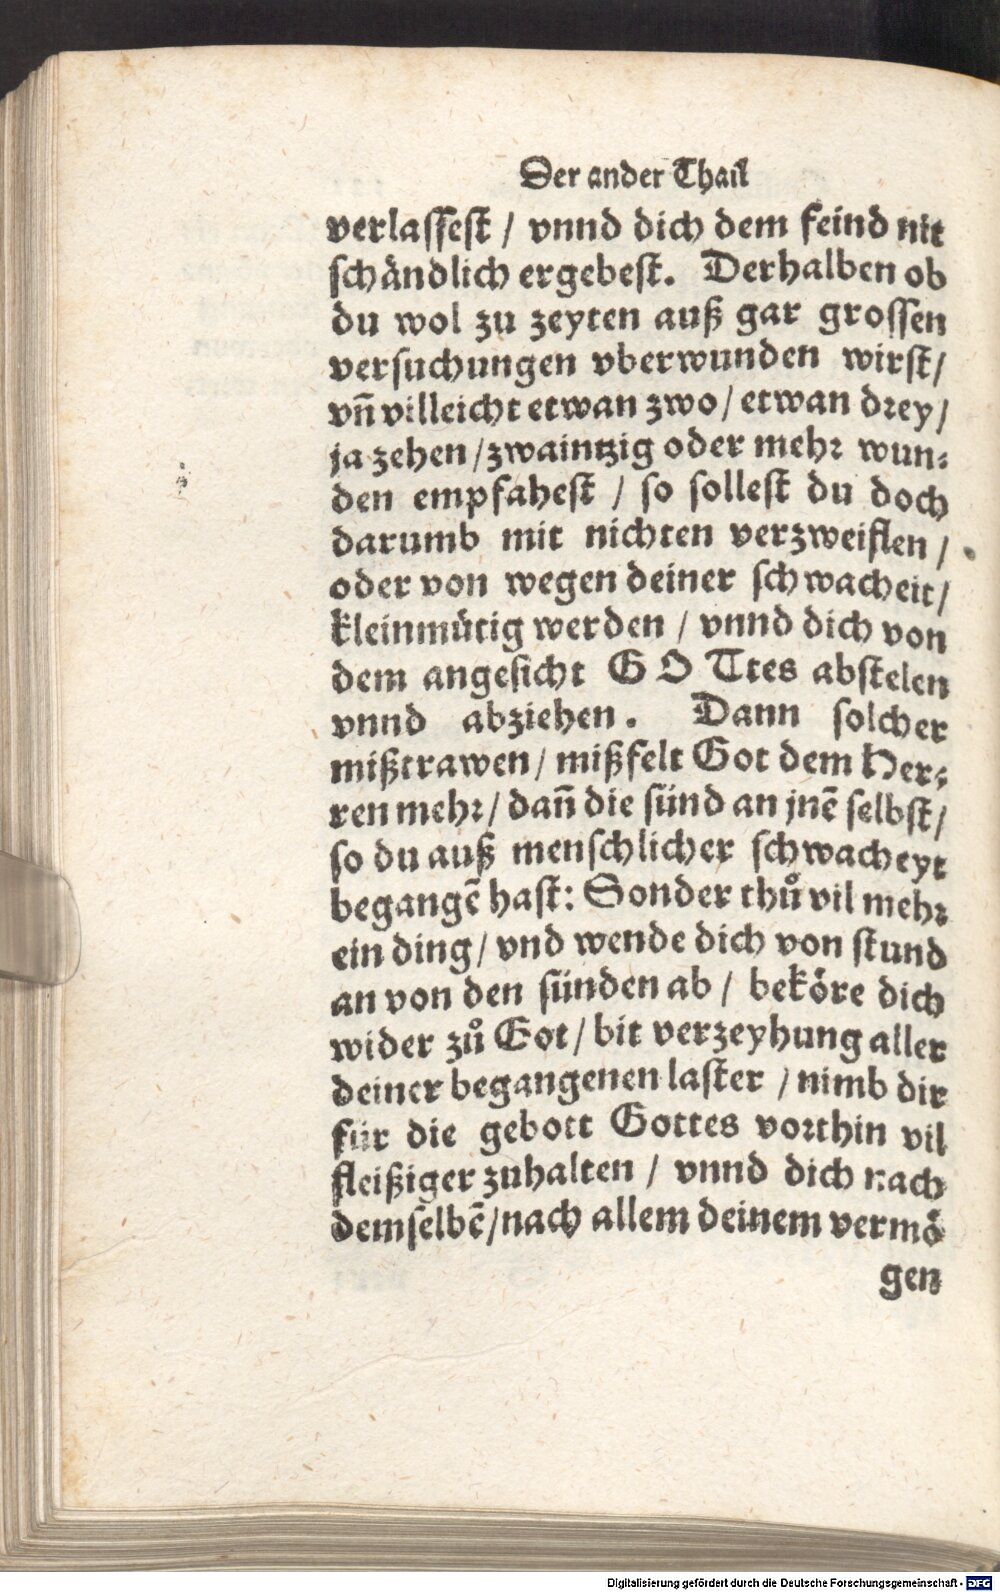 Der ander Thail
verlassest / vnnd dich dem feind nit
schändlich ergebest. Derhalben ob
du wol zu zeyten auß gar grossen
versuchungen vberwunden wirst/
vñ villeicht etwan zwo / etwan drey /
ja zehen / zwaintzig oder mehr wun⸗
den empfahest / so sollest du doch
darumb mit nichten verzweiflen /
oder von wegen deiner schwacheit /
kleinmütig werden / vnnd dich von
dem angesicht GOTtes abstelen
vnnd abziehen. Dann solcher
mißtrawen / mißfelt Got dem Her⸗
ren mehr / dañ die sünd an jnẽ selbst /
so du auß menschlicher schwacheyt
begangẽ hast: Sonder thů vil mehr
ein ding / vnd wende dich von stund
an von den sünden ab / beköre dich
wider zů Got / bit verzeyhung aller
deiner begangenen laster / nimb dir
für die gebott Gottes vorthin vil
fleißiger zuhalten / vnnd dich nach
demselbẽ / nach allem deinem vermö
gen
Digitalisierung gefördert durch die Deutsche Forschungsgemeinschaft - DFG